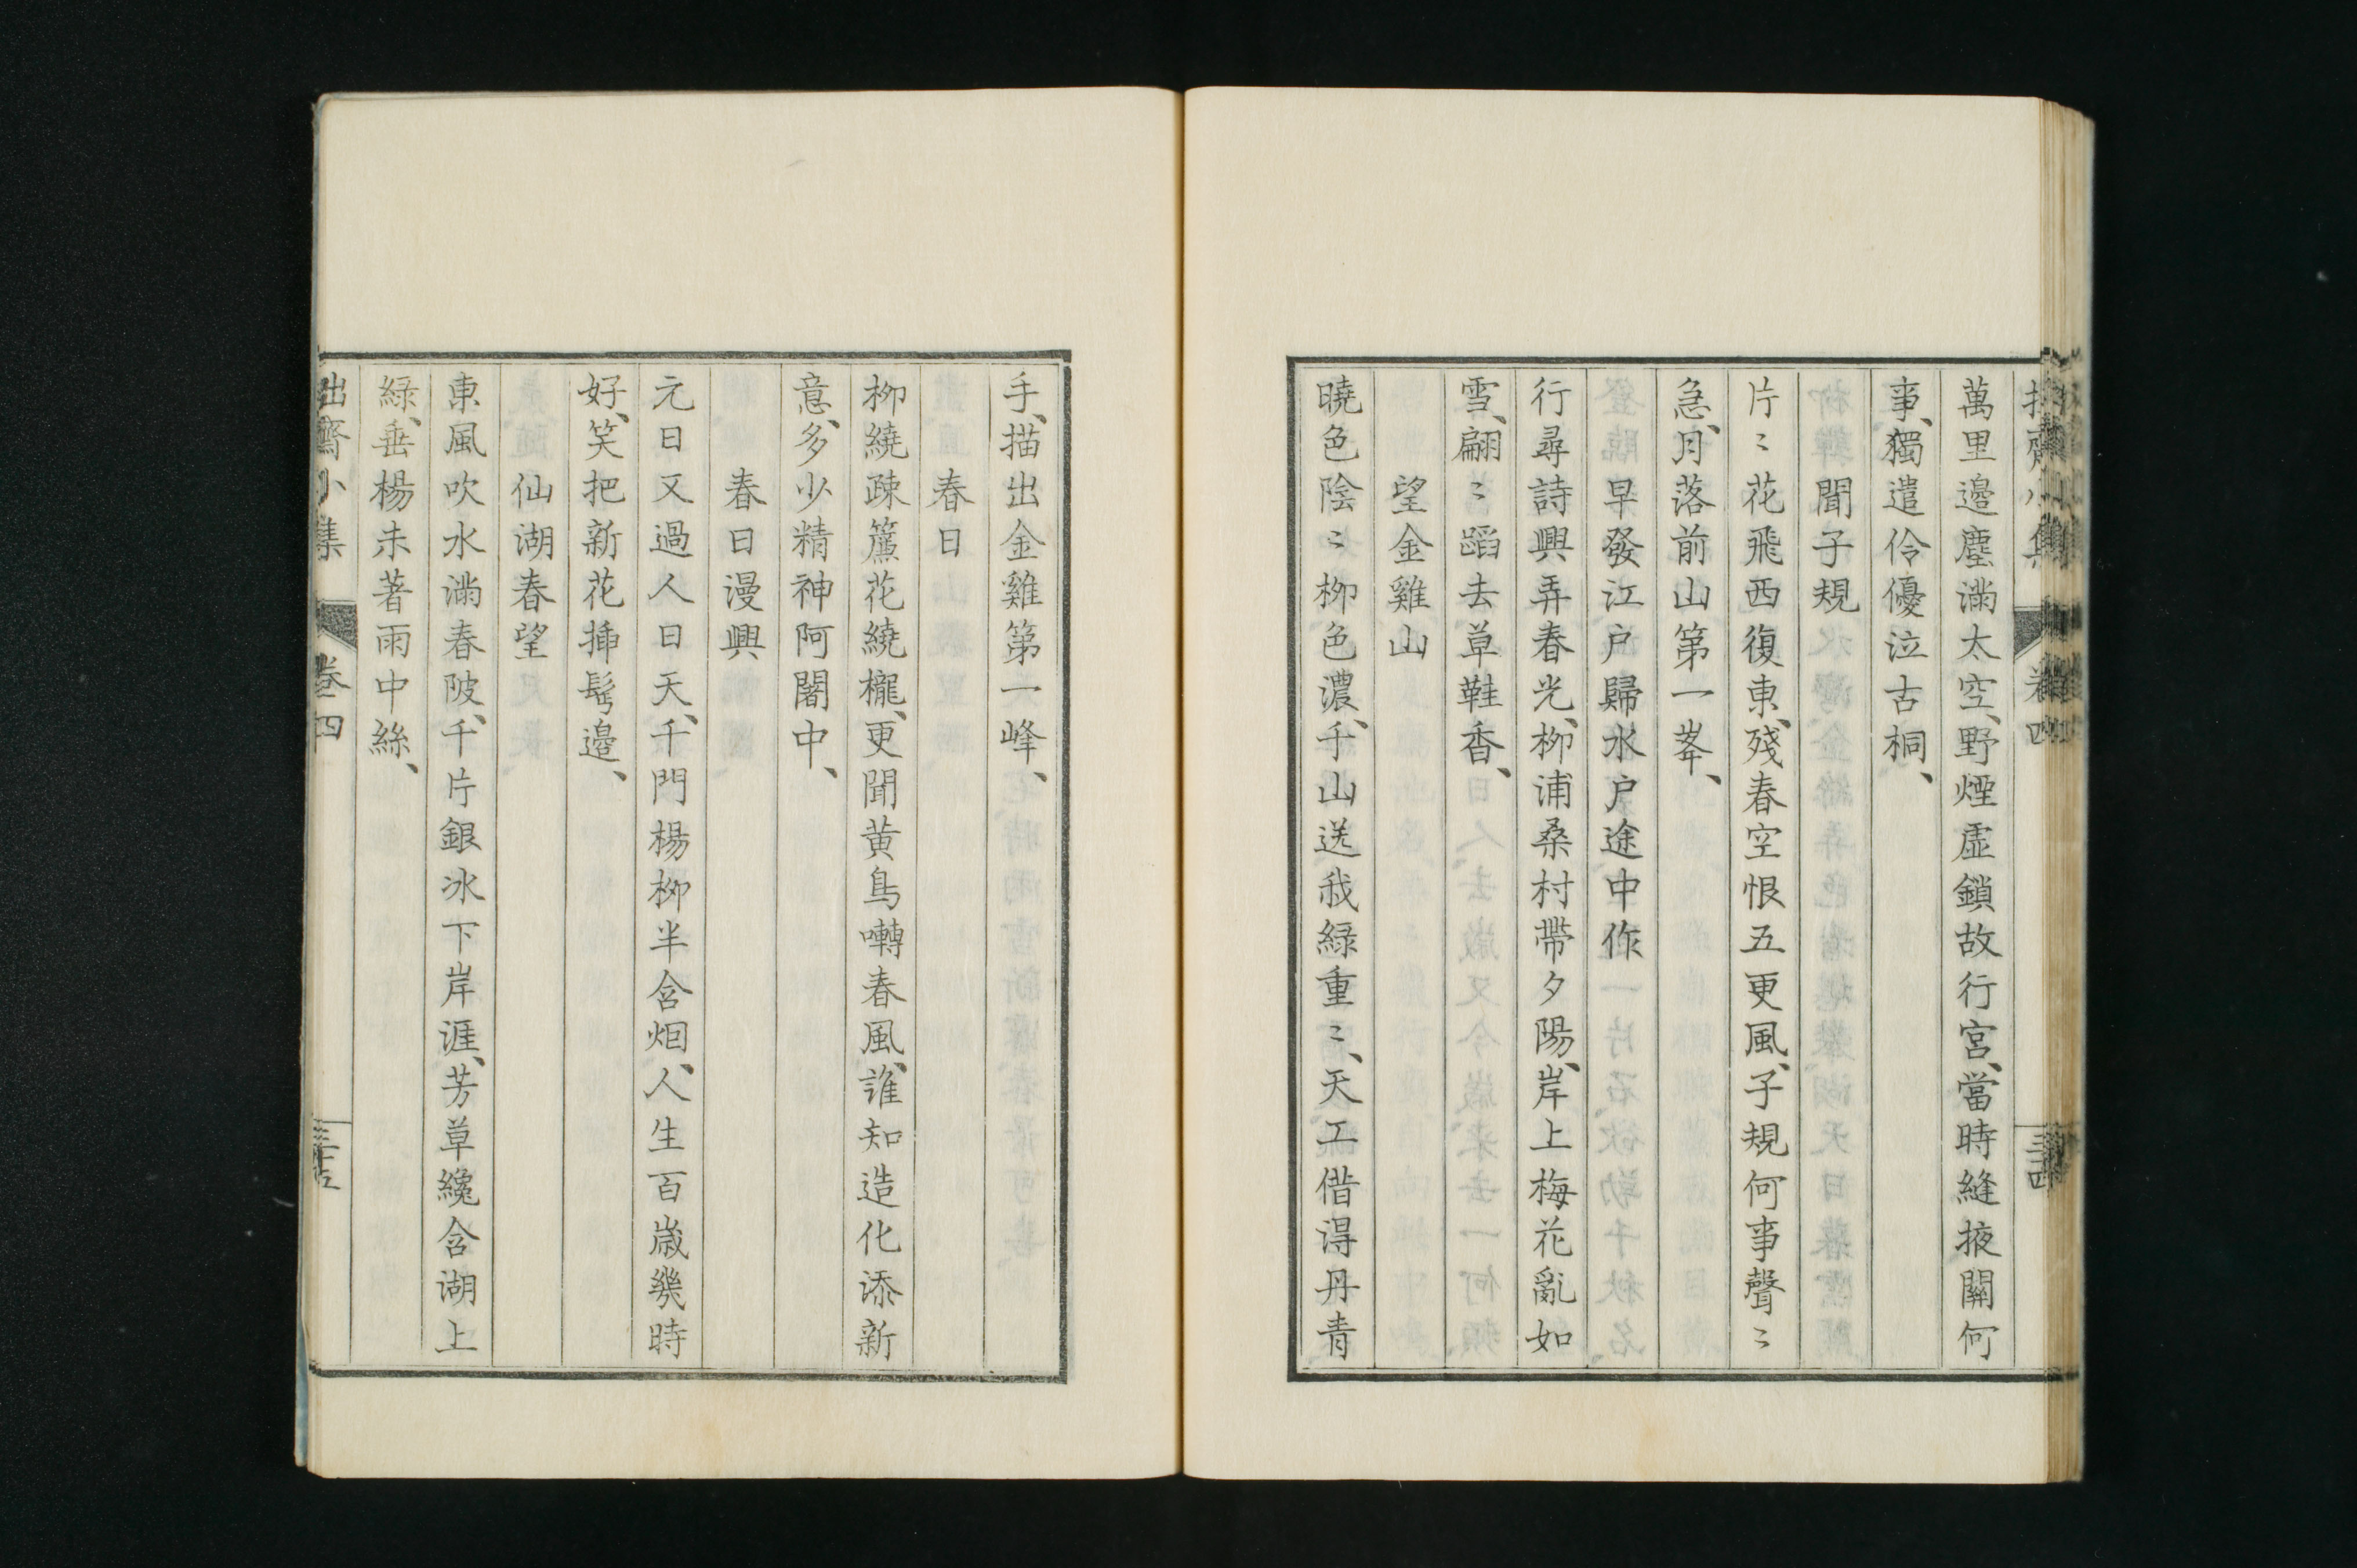 萬里邊塵滿太空、野煙虛鎖故行宮、當時縫掖關何
事、獨遣伶優泣古桐、
聞子規
片〻花飛西復東、殘春空恨五更風、子規何事聲〻
急、月落前山第一峯、
早發江戶歸水戶途中作
行尋詩興弄春光、柳浦桑村帶夕陽、岸上梅花亂如
雪、翩〻蹈去草鞋香、
望金雞山
曉色陰〻柳色濃、千山送我綠重〻、天工借得丹青
手、描出金雞第一峰、
春日
柳繞疎簾花繞櫳、更聞黃鳥囀春風、誰知造化添新
意、多少精神阿闍中、
春日漫興
元日又過人日天、千門楊柳半含烟、人生百歲幾時
好、笑把新花揷髩邊、
仙湖春望
東風吹水滿春陂、千片銀冰下岸涯、芳草纔含湖上
綠、垂楊未著雨中絲、
拙齋小集 卷四 三十五